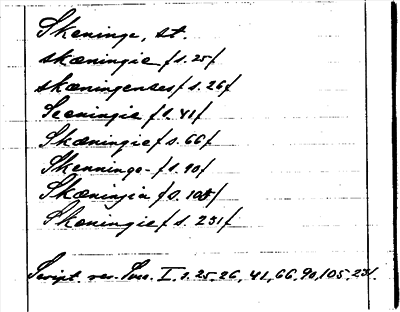 Skeninge, st.
skæningie / s. 25 /
skæningenses / s. 26 /
Sceningie / s. 41 /
Skæningie / s. 66 /
Skenninge- / s. 90 /
Skæningia / s. 105 /
Skeningie / s. 231 /
Script. rer. Suec. I, s. 25, 26, 41, 66, 90, 105, 231.